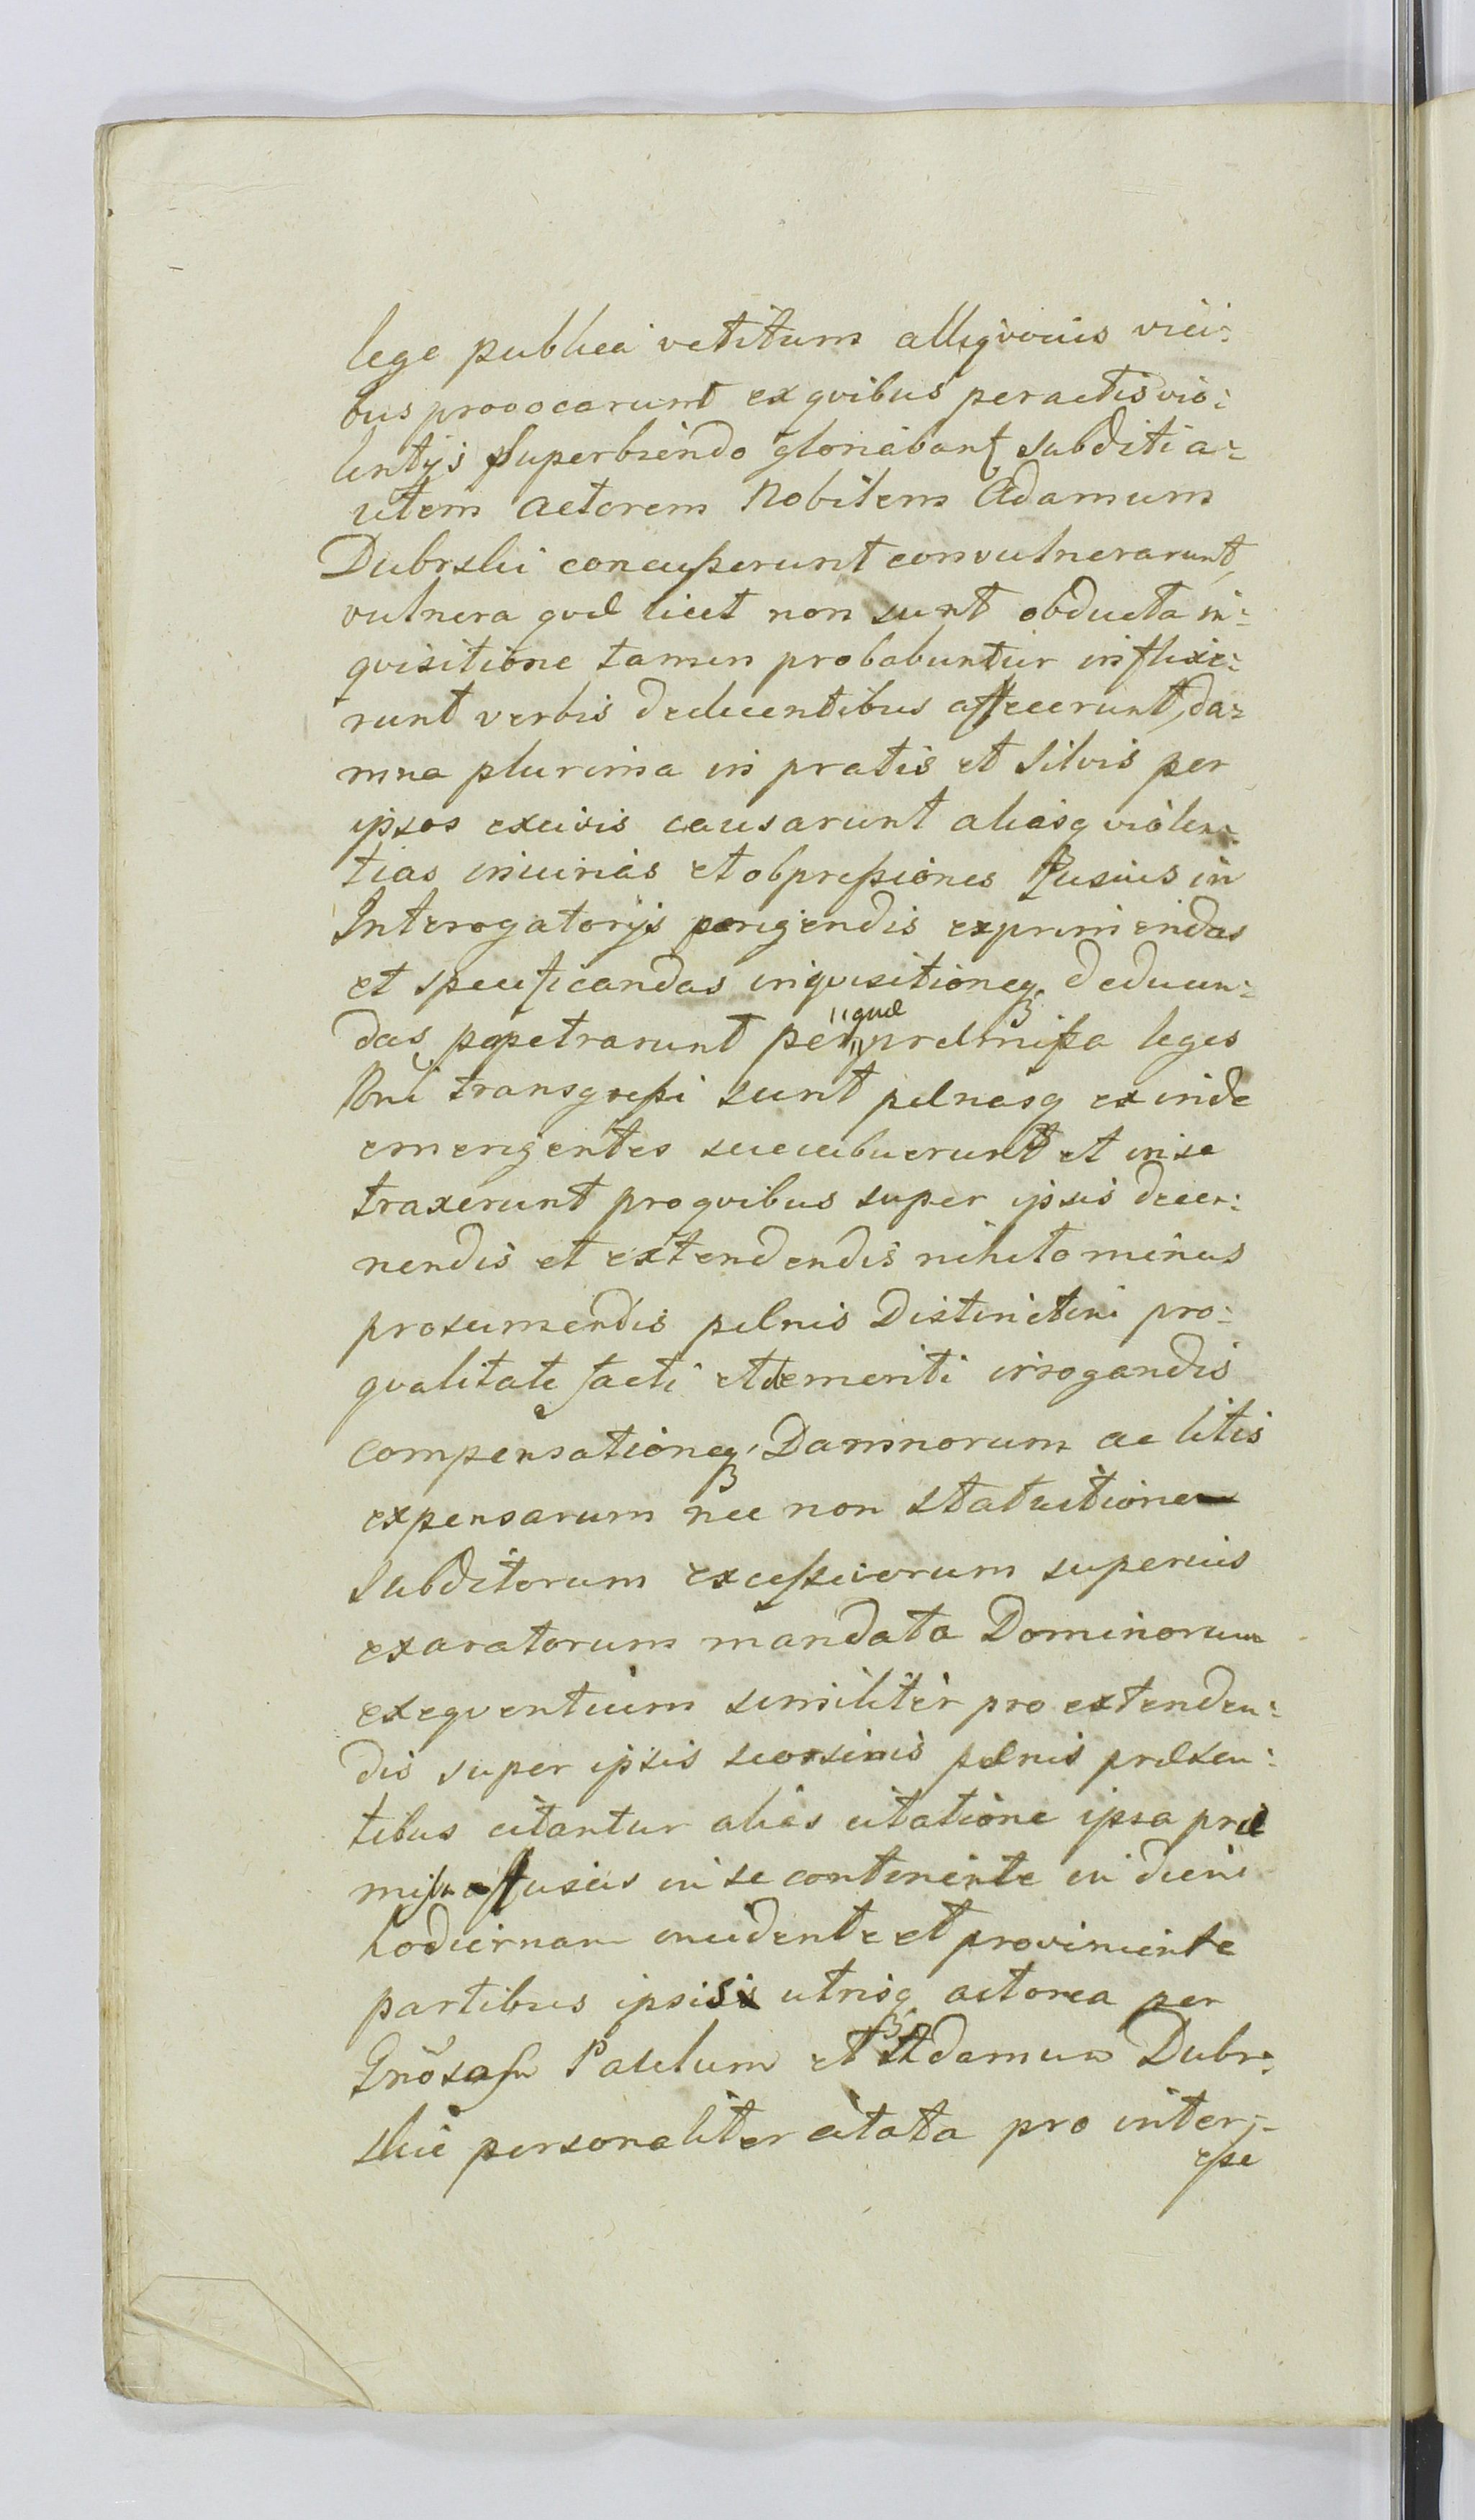 lege publica vetitum alliqvovies vici:
bus provocarunt ex qvibus peractis vio:
lentijs superbiendo gloriabant subditi a=
utem actorem Nobilem Adamum
Dubrskii concusserunt convulnerarunt,
vulnera qvæ licet non sunt obducta in:
qvisitione tamen probabuntur inflixe:
runt verbis dedecentibus affecerunt, da=
mna plurima in pratis et silvis per
ipsos excisis causarunt aliasq violen:
tias iniurias et obpressiones fusius in
Interogatorijs porigendis exprimendas
et specificandas inqvisitioneq deducen:
das perpetrarunt per præmissa leges
"quæ
Rni transgressi sunt pænasq exinde
emergentes succubuerunt et in se
traxerunt pro qvibus super ipsis decer:
nendis et extendendis nihilominus
prosumendis pænis Distinctim pro:
qvalitate facti et demeriti irrogandis
compensationeq Damnorum ac litis
expensarum nec non statuitione
subditorum excessivorum superius
exaratorum mandata Dominorum
exeqventium similiter pro extenden:
dis super ipsis seorsivis pænis præsen:
tibus citantur alias citatione ipsa præ
missa fusius in se continente in diem
hodiernam incidente et proviniente
partibus ipsis utrisq actorea per
Gnosum Paulum et Adamum Dubr:
skie personaliter citata pro inter:
esse